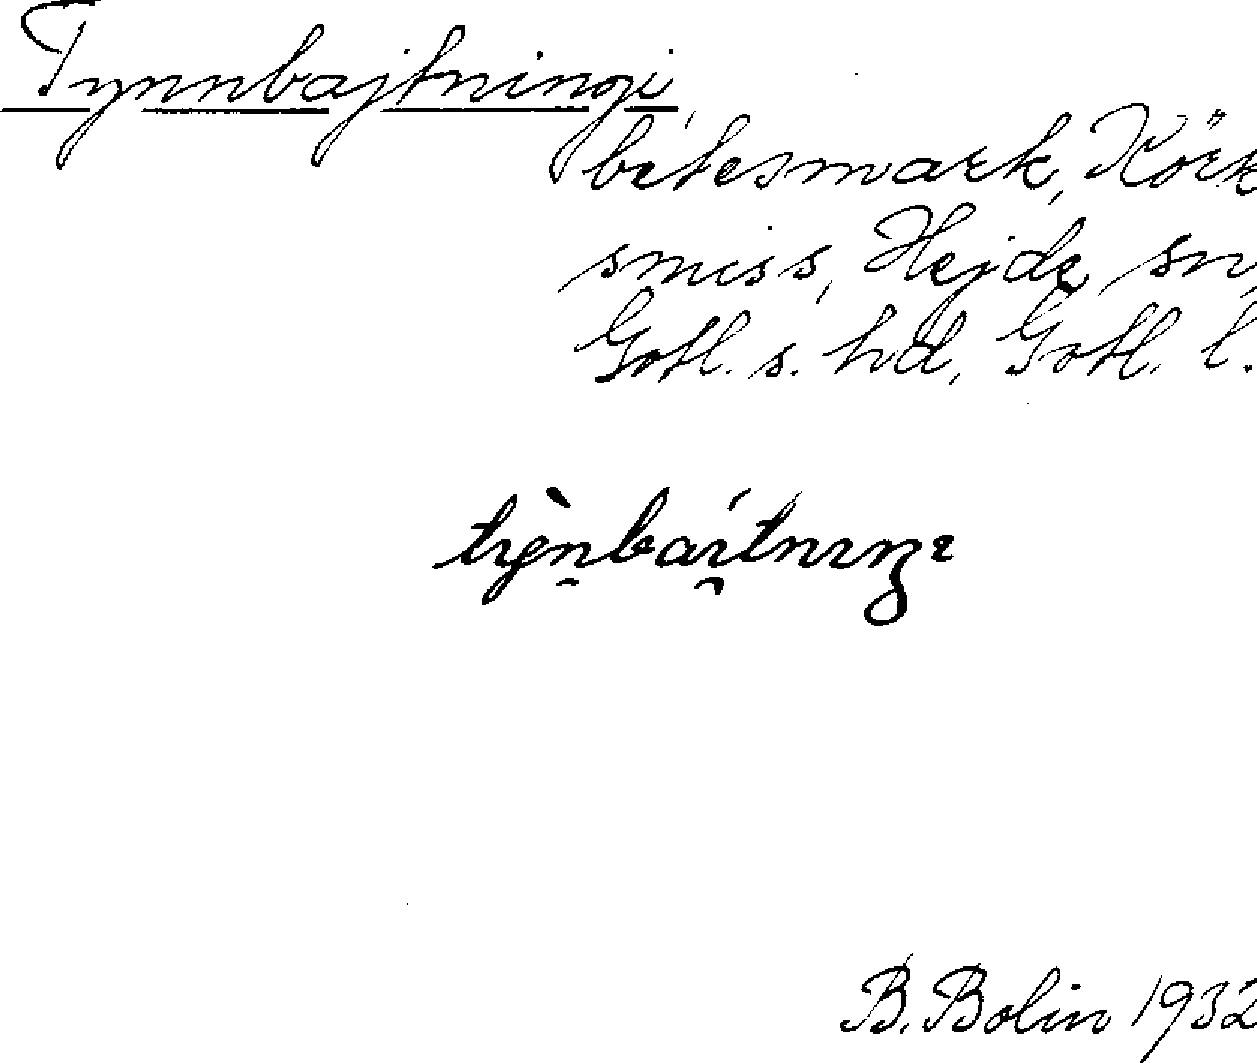 Tynnbajtningi
betesmark, Körk
smiss, Hejde sn,
Gotl. s. hd, Gotl. l.
B. Bolin 1932